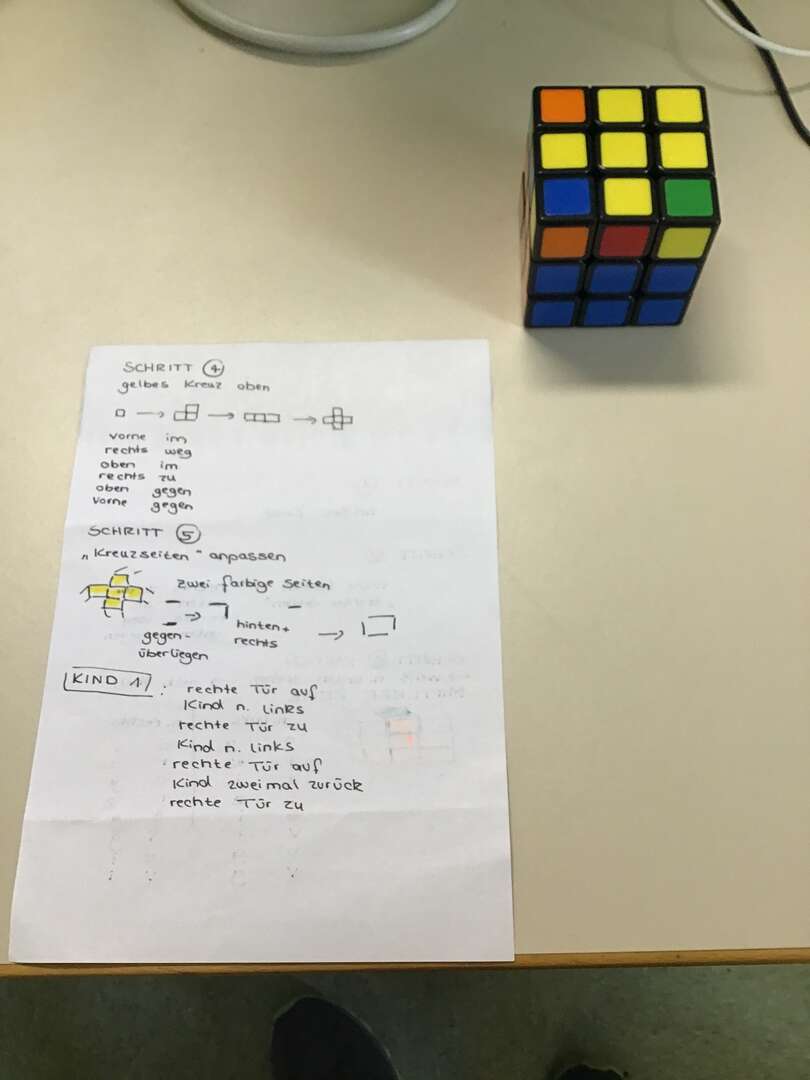 SCHRITT 4
gelbes Kreuz oben
vorne im
rechts weg
oben im
rechts zu
oben gegen
vorne gegen
SCHRITT 5
„Kreuzseiten" anpassen
zwei farbige Seiten
gegen-
überliegen
hinten+
rechts
KIND 1 : rechte Tür auf
Kind n. links
rechte Tür zu
Kind n. links
rechte Tür auf
Kind zweimal zurück
rechte Tür zu